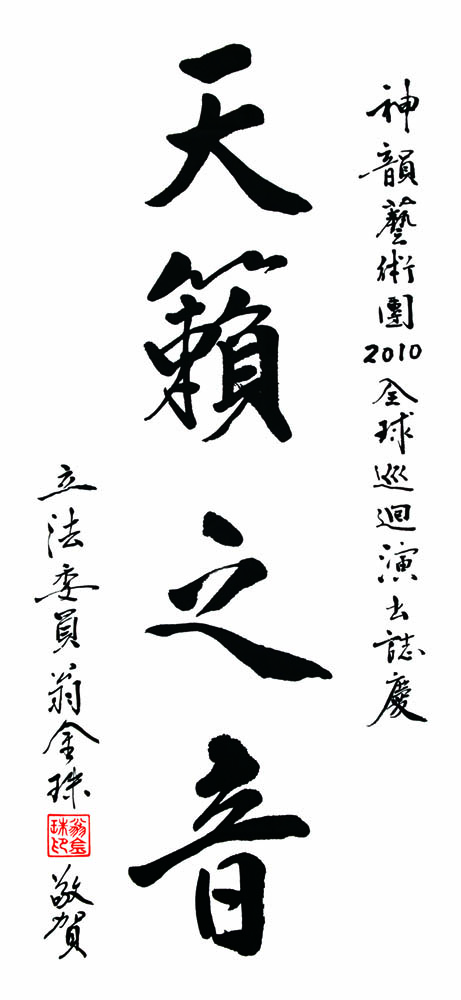 神韻藝術團2010全球巡迴演出誌慶
天籟之音
立法委員翁金珠
翁金珠印
敬賀